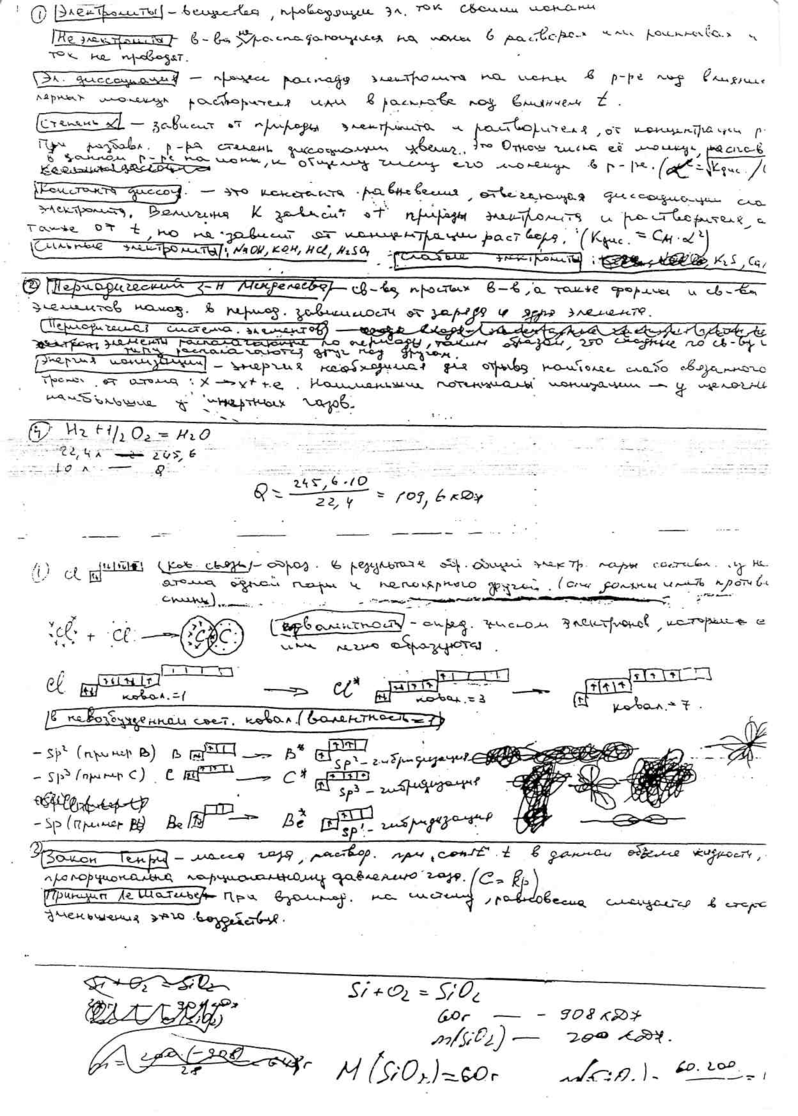 ① Электролиты – вещества, проводящие эл. ток своими ионами
Неэлектролиты – в-ва не распадающиеся на ионы в растворах или расплавах и
ток не проводят.
Эл. диссоциация – процесс распада электролита на ионы в р-ре под влияние
лярных молекул растворителя или в расплаве под влиянием t.
Степень α – зависит от природы электролита и растворителя, от концентрации р
При разбавл. р-ра степень диссоциации увелич. Это Отнош числа её молекул,
в данном р-ре на ионы, к общему числу его молекул в р-ре. (α = √Kдис. /
Константа диссоц. – это константа равновесия, отвечающая диссоциации сла
электролита. Величина K зависит от природы электролита и растворителя, а
также от t, но не зависит от концентрации раствора. (Kдис. = Cм · α²)
Сильные электролиты: NaOH, KOH, HCl, H₂SO₄ Слабые электролиты: K₂S, Ca,
② Периодический з-н Менделеева – св-ва простых в-в, а также формы и св-ва
элементов наход. в период. зависимости от заряда ядра элемента.
Периодическая система элементов –
элементы располагающие по периоду, таким образом, что сходные по св-ву
располагаются друг под другом.
Энергия ионизации – энергия необходимая для отрыва наиболее слабо связанного
от атома: x → x⁺ + e. Наименьшие потенциалы ионизации – у щелочн
наибольшие у инертных газов.
④ H₂ + 1/2 O₂ = H₂O
22,4 л — 245,6
10 л — Q
Q = 245,6 · 10 / 22,4 = 109,6 кДж
① Cl Ков. связь – образ. в результате обр. общей электр. пары
атома одной пары и другой. (они должны иметь против
спины)
Cl + Cl → Cl Cl валентность – опред. числом электронов, которые
или легко образуются.
Cl ковал.=1 → Cl* ковал.=3 → ковал.=7.
В невозбужденном сост. ковал. (валентность=1)
– sp² (пример B) B → B* sp² – гибридизация
– sp³ (пример C) C → C* sp³ – гибридизация
– sp (пример Be) Be → Be* sp' – гибридизация
3 Закон Генри – масса газа, раствор. при const t в данном объеме жидкости,
пропорциональна парциальному давлению газа. (C = kp)
Принцип Ле Шателье – При взаимод. на систему, равновесие смещается в сторо
уменьшения этого воздействия.
Si + O₂ = SiO₂ Si + O₂ = SiO₂
60г — – 908 кДж
m(SiO₂) — 200 кДж.
M(SiO₂) = 60г m(SiO₂) = 60·200